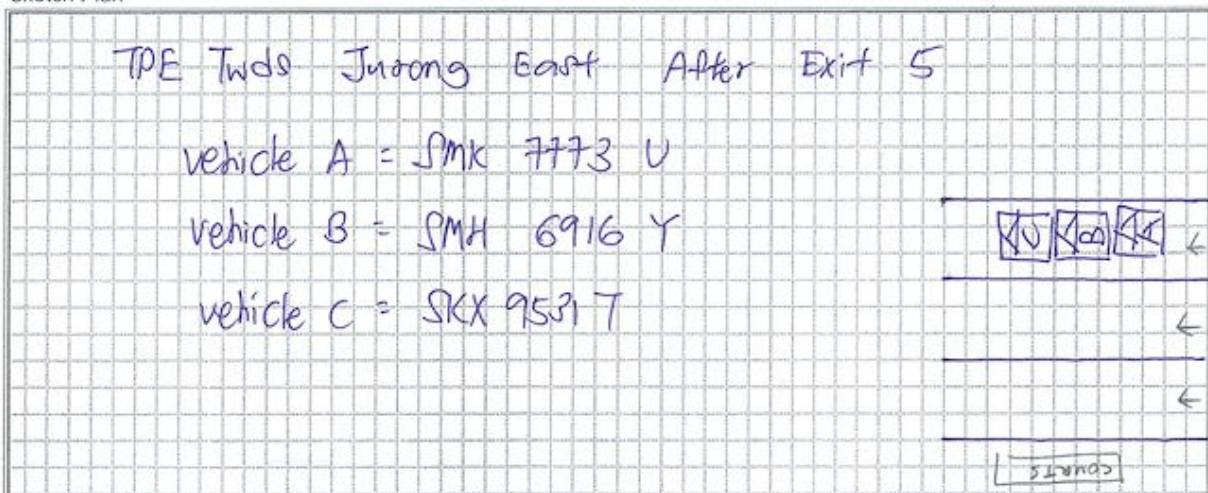 TPE Twds Jurong East After Exit 5
vehicle A = SMK 7773 U
vehicle B = SMH 6916 Y
vehicle C = SKX 9531 T
C B A
COURTS